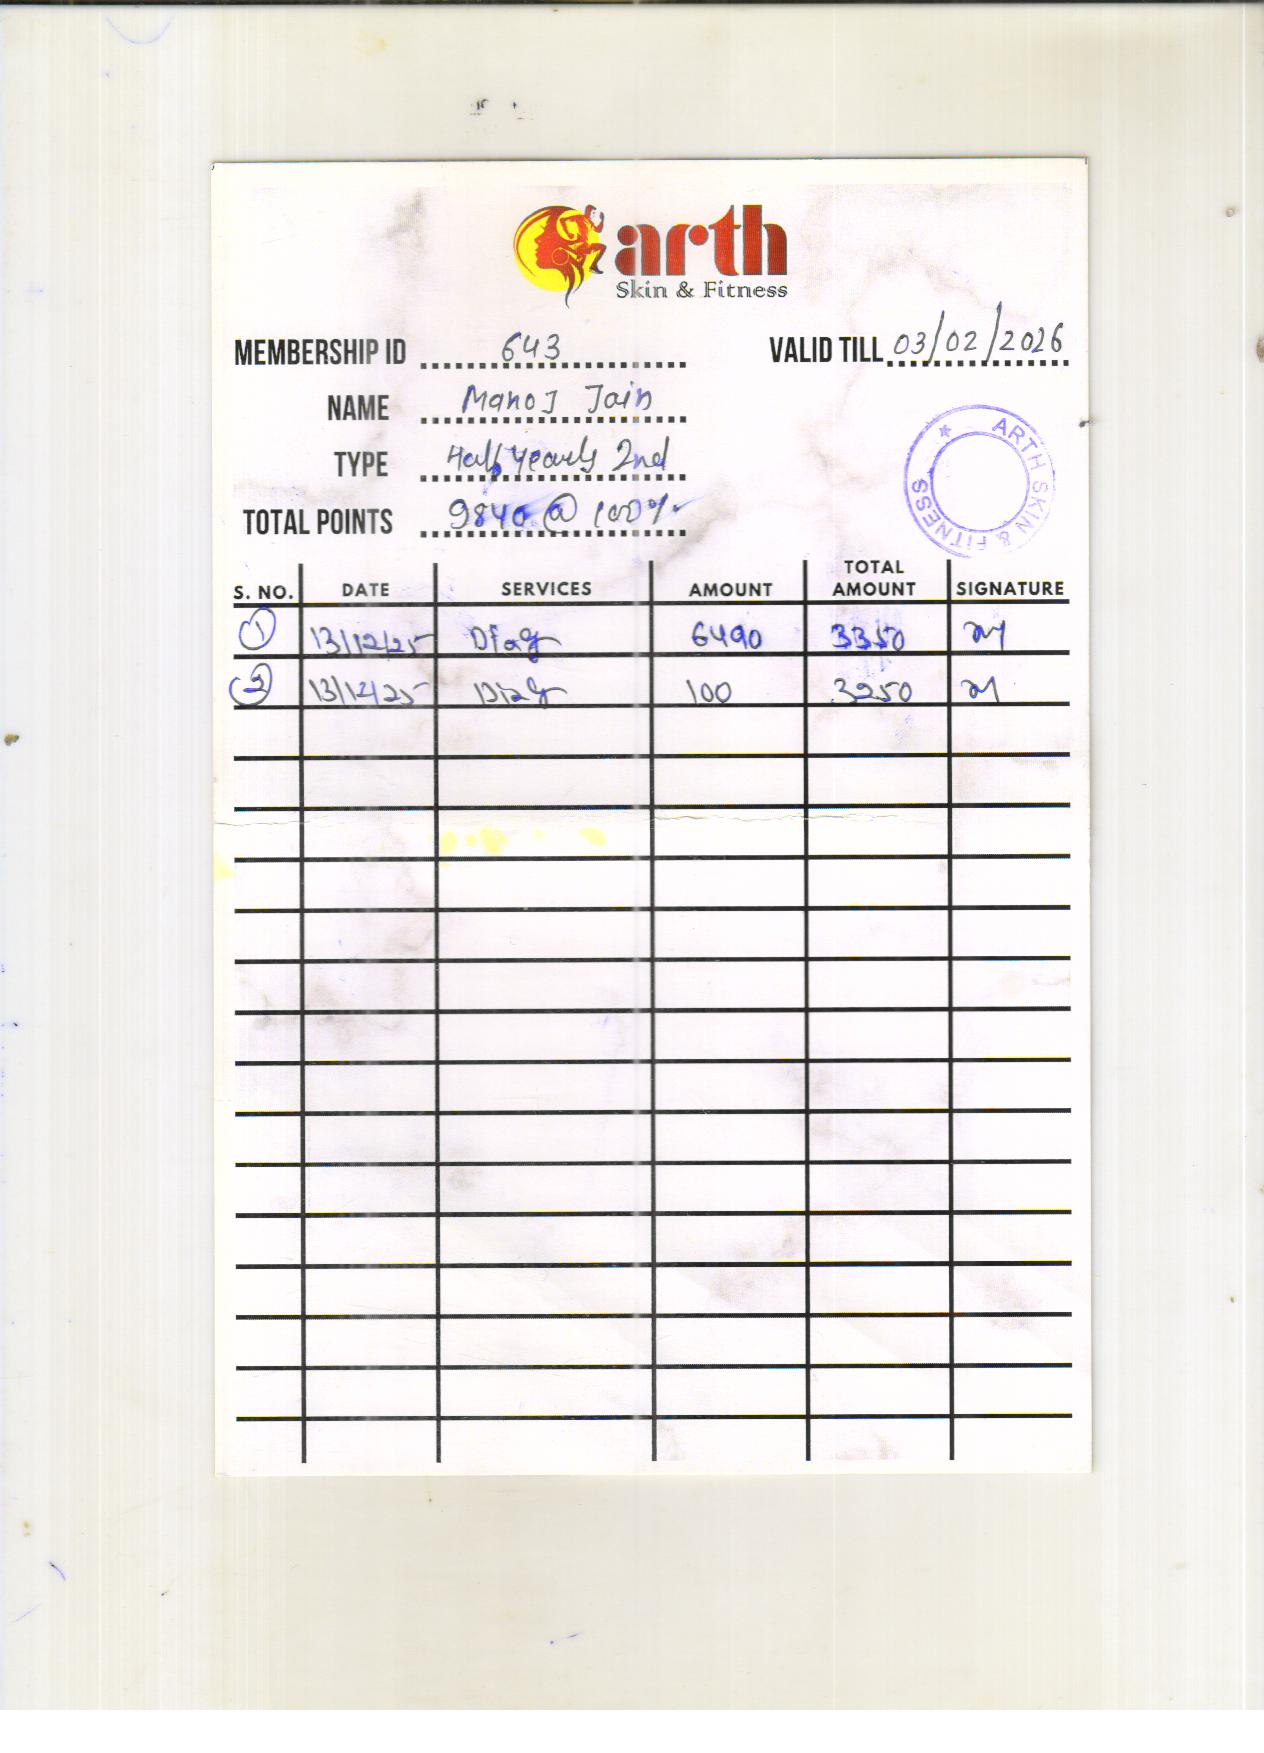 arth
Skin & Fitness
MEMBERSHIP ID 643 VALID TILL 03/02/2026
NAME Manoj Jain
TYPE Half Yearly 2nd
TOTAL POINTS 9840 @ 100%
ARTH SKIN & FITNESS
S. NO. DATE SERVICES AMOUNT TOTAL AMOUNT SIGNATURE
1 13/12/25 Diag 6490 3350
2 13/12/25 Diag 100 3250